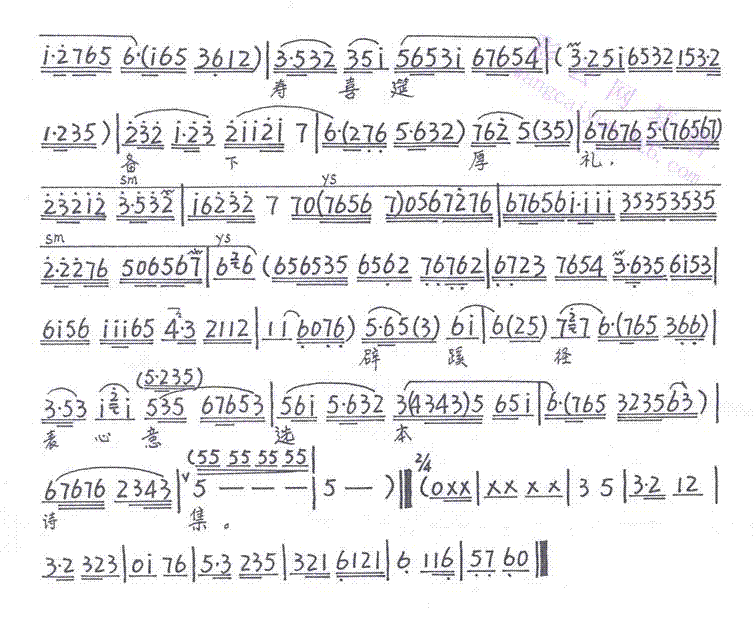 i·2765 6·(i65 3612)|3·532 35i 5653i 67654|(3·25i6532 153·2
寿 喜 筵
1·235)|232 i·23 2ii2i 7|6·(276 5·632) 762 5(35)|67676 5·(76567)
备 下 厚 礼,
sm
232i2 3·532|i6232 7 70(7656 7)0567276|67656i·iii 35353535
ys
sm ys
2·2276 506567|6 6 (656535 6562 76762|6723 7654 3·635 6i53|
6i56 iii65 4·3 2112|1i 6076) 5·65(3) 6i|6(25) 7 7 6·(765 366)|
辟 蹊 径
(5·235)
3·53 i i 535 67653|56i 5·632 3(4343)5 65i|6·(765 323563)|
表 心 意 选 本
(55 55 55 55| 2/4
67676 2343|5 — — — —|5 — )‖(0xx|xx x x|3 5|3·2 12|
诗 集。
3·2 323|0i 76|5·3 235|321 6121|6 116|57 60‖